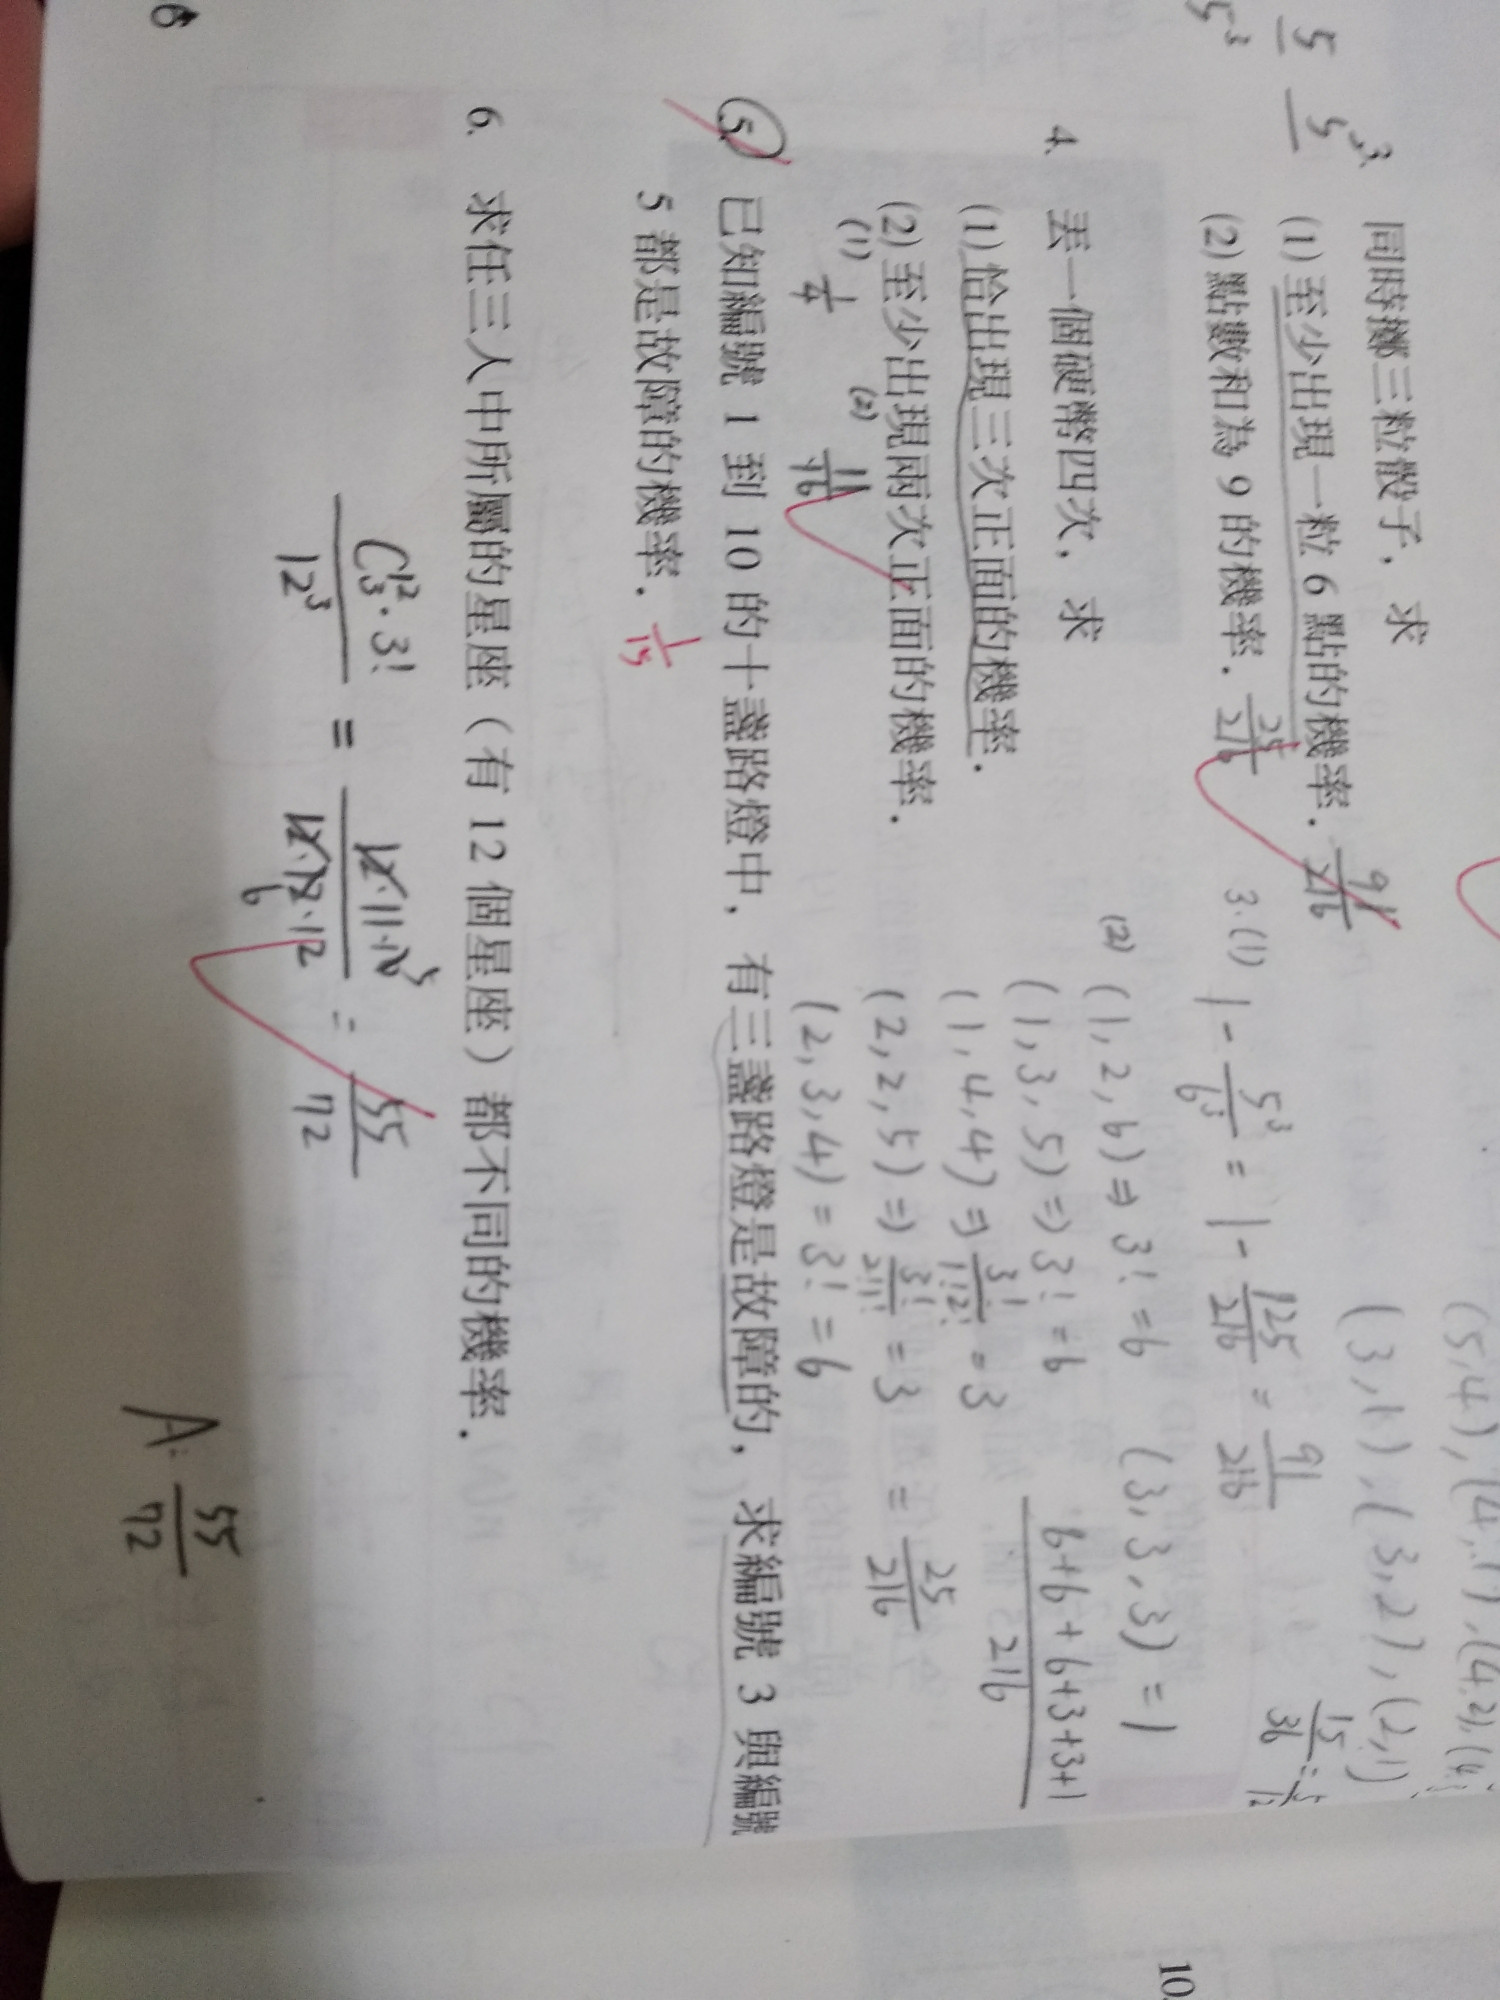 3. 同時擲三粒骰子，求
(1) 至少出現一粒 6 點的機率． 91/216
(2) 點數和為 9 的機率． 25/216
(5,4),(4,1),(4,2),
(3,1),(3,2),(2,1)
15/36 = 5/12
3.(1) 1 - 5³/6³ = 1 - 125/216 = 91/216
(2) (1,2,6) ⇒ 3! = 6
(1,3,5) ⇒ 3! = 6
(1,4,4) ⇒ 3!/1!2! = 3
(2,2,5) ⇒ 3!/2!1! = 3
(2,3,4) = 3! = 6
(3,3,3) = 1
6+6+6+3+3+1/216
= 25/216
4. 丟一個硬幣四次，求
(1) 恰出現三次正面的機率．
(2) 至少出現兩次正面的機率．
(1) 1/4 (2) 11/16
5. 已知編號 1 到 10 的十盞路燈中，有三盞路燈是故障的，求編號 3 與編號
5 都是故障的機率． 1/15
6. 求任三人中所屬的星座（有 12 個星座）都不同的機率．
C¹²₃·3!/12³ = 12·11·10 5/12·12·12 6 = 55/72
A: 55/72
10.